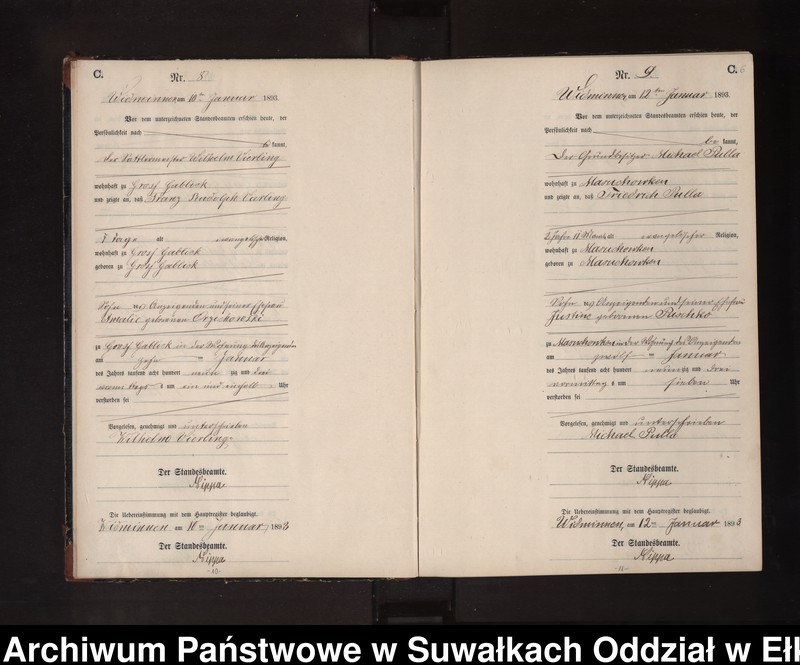 C.
Nr. 8
Widminnen am 10ten Januar 1893.
Vor dem unterzeichneten Standesbeamten erschien heute, der
Persönlichkeit nach
be kannt,
der Sattlermeister Wilhelm Vierling
wohnhaft zu Gross Gablick
und zeigte an, daß Franz Rudolph Vierling
7 Tage alt evangelischer Religion,
wohnhaft zu Gross Gablick
geboren zu Gross Gablick
Sohn des Anzeigenden und seiner Ehefrau
Amalie geborenen Orzechowski
zu Gross Gablick in der Wohnung des Anzeigenden
am zehn ten Januar
des Jahres tausend acht hundert neun zig und drei
vormittags um ein und einhalb Uhr
verstorben sei
Vorgelesen, genehmigt und unterschrieben
Wilhelm Vierling
Der Standesbeamte.
Nippa
Die Uebereinstimmung mit dem Hauptregister beglaubigt.
Widminnen am 10ten Januar 1893
Der Standesbeamte.
Nippa
- 10 -
C.
Nr. 9
Widminnen am 12ten Januar 1893.
Vor dem unterzeichneten Standesbeamten erschien heute, der
Persönlichkeit nach
be kannt,
Der Grundbesitzer Michael Pulla
wohnhaft zu Masuchowken
und zeigte an, daß Friedrich Pulla
2 Jahre 11 Monat alt evangelischer Religion,
wohnhaft zu Masuchowken
geboren zu Masuchowken
Sohn des Anzeigenden und seiner Ehefrau
Justine geborenen Puschko
zu Masuchowken in der Wohnung des Anzeigenden
am zwölf ten Januar
des Jahres tausend acht hundert neunzig und drei
vormittags um sieben Uhr
verstorben sei
Vorgelesen, genehmigt und unterschrieben
Michael Pulla
Der Standesbeamte.
Nippa
Die Uebereinstimmung mit dem Hauptregister beglaubigt.
Widminnen, am 12ten Januar 1893
Der Standesbeamte.
Nippa
- 11 -
Archiwum Państwowe w Suwałkach Oddział w Eł